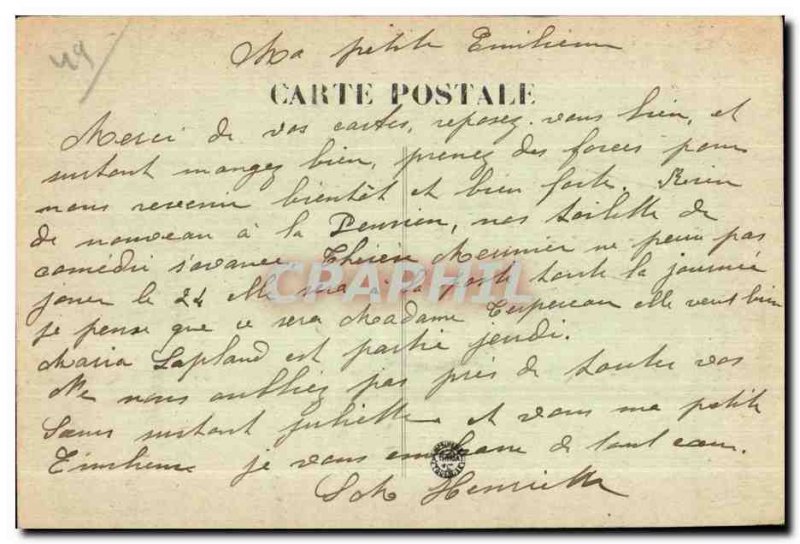 49
Ma petite Emilienne
CARTE POSTALE
Merci de vos cartes, reposez vous bien, et
surtout mangez bien, prenez des forces pour
nous revenir bientôt et bien forte. Rien
de nouveau à la Pension, nos toilette de
comédie s'avance Thérèse Meunier ne peux pas
jouer le 24 elle sera à la poste toute la journée
je pense que ce sera Madame elle veut bien
Maria Lapland est partie jeudi.
Ne nous oubliez pas près de toutes vos
Sœurs surtout Juliette et vous ma petite
Emilienne je vous embrasse de tout cœur.
Henriette
CPAPHIL